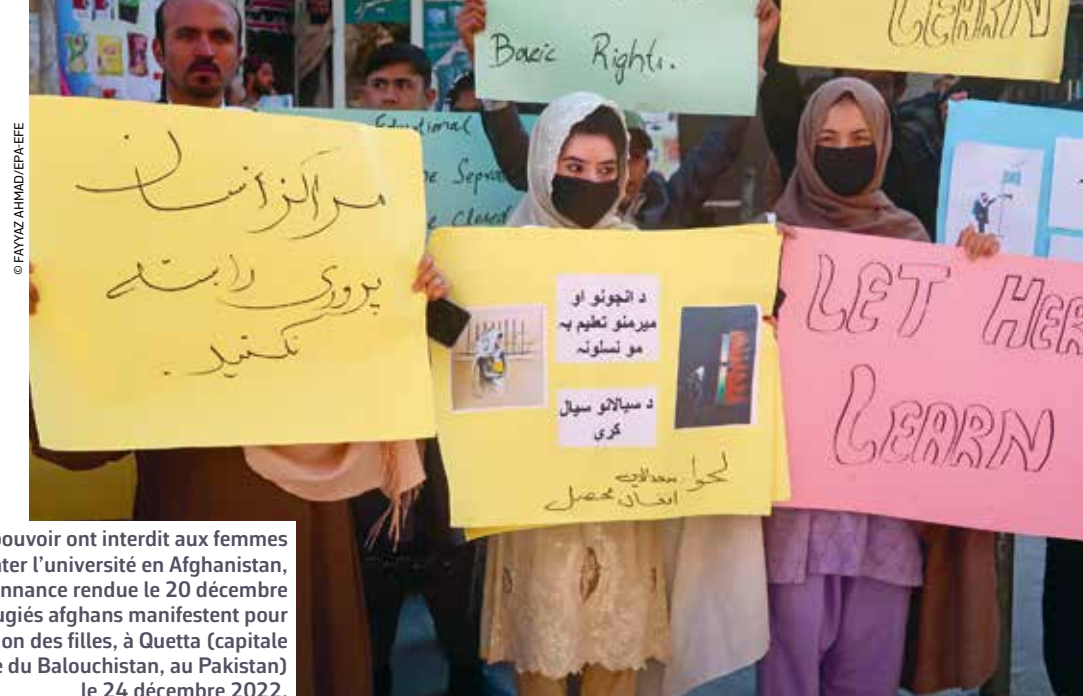 © FAYYAZ AHMAD/EPA-EFE
Basic Rights.
LEARN
Closed
مراکز انسان
پروری را بسته
نکنید.
د انجونو او
میرمنو تعلیم به
مو نسلونه
د سیالانو سیال
کړی
محصل
LET HER
LEARN
pouvoir ont interdit aux femmes
ter l’université en Afghanistan,
nnance rendue le 20 décembre
ugiés afghans manifestent pour
on des filles, à Quetta (capitale
e du Balouchistan, au Pakistan)
le 24 décembre 2022.